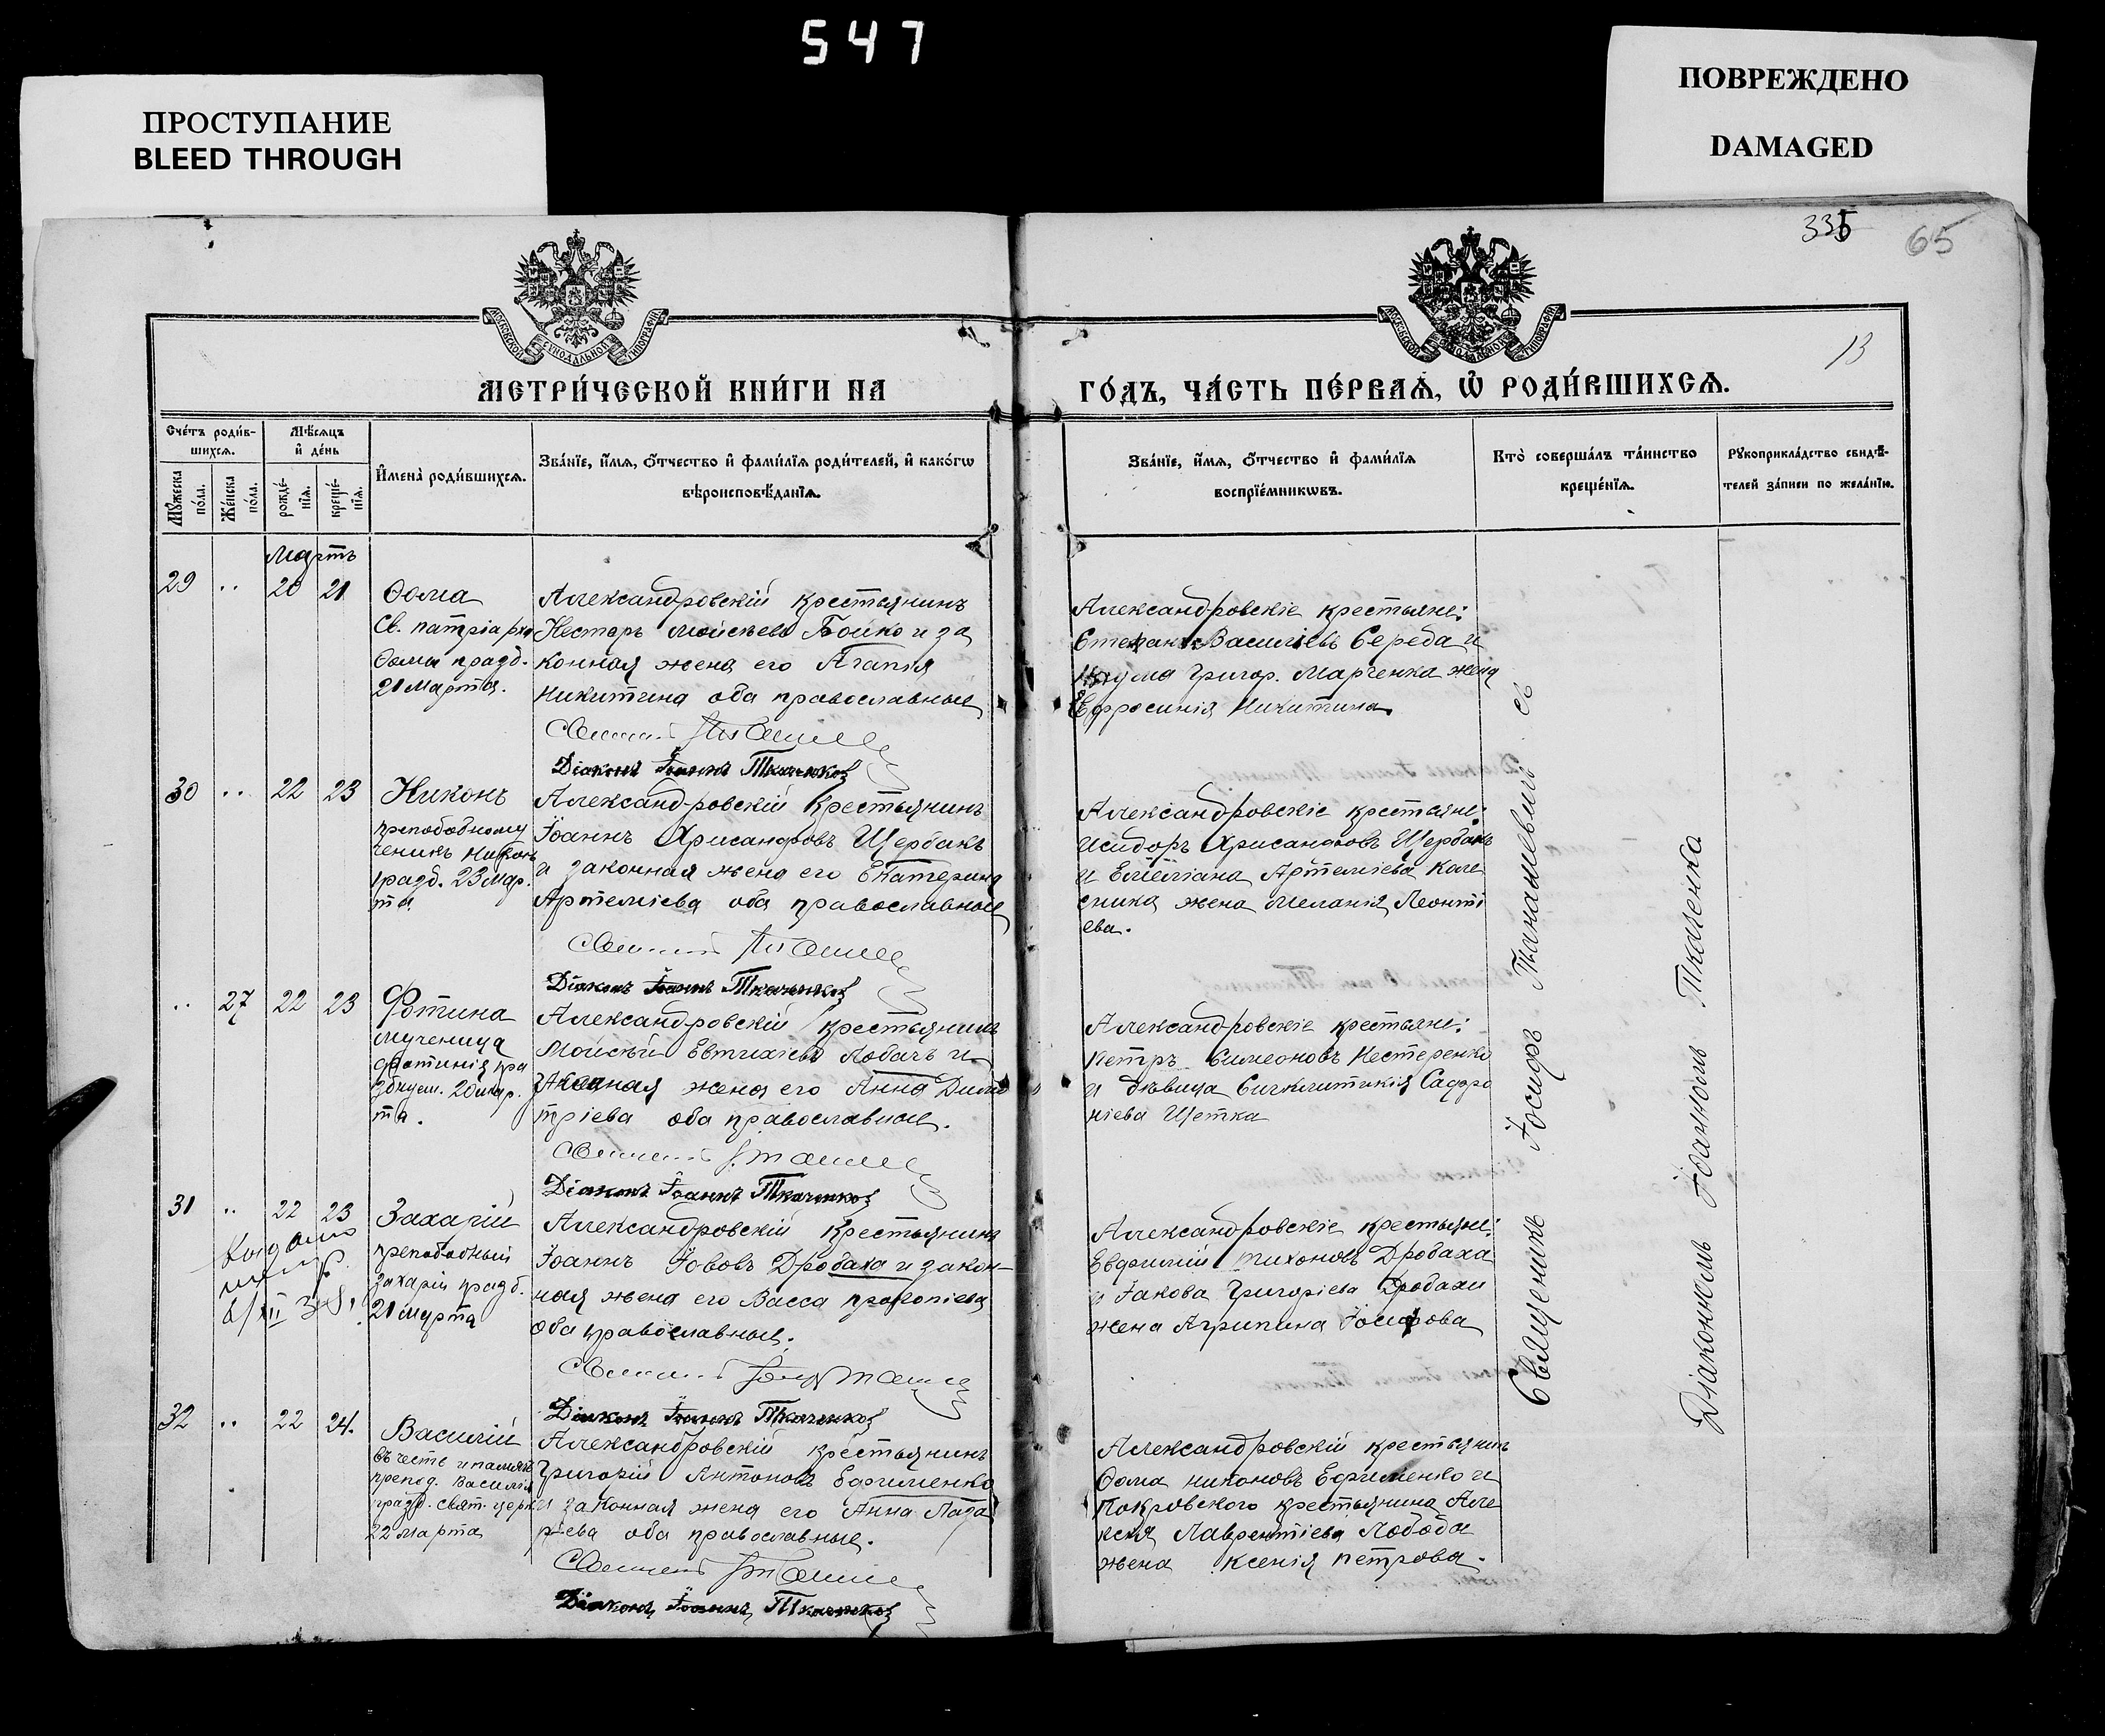 547
ПРОСТУПАНИЕ
BLEED THROUGH
ПОВРЕЖДЕНО
DAMAGED
335 65
13
МОСКОВСКОЙ СѴНОДАЛЬНОЙ ТИПОГРАФІИ
МОСКОВСКОЙ СѴНОДАЛЬНОЙ ТИПОГРАФІИ
МЕТРИ́ЧЕСКОЙ КНИ́ГИ НА
ГО́ДЪ, ЧА́СТЬ ПЕ́РВАѦ, Ѡ РОДИ́ВШИХСѦ.
Сче́тъ роди́в-
шихсѧ.
Мѣ́сѧцъ
и де́нь
Мꙋ́жеска
по́ла.
Же́нска
по́ла.
рожде́-
нїѧ.
креще́-
нїѧ.
И҆мена̀ роди́вшихсѧ.
Зва́нїе, и҆́мѧ, ѻ҆́тчество и҆ фами́лїѧ роди́телей, и҆ како́гѡ
вѣроисповѣ́данїѧ.
Зва́нїе, и҆́мѧ, ѻ҆́тчество и҆ фами́лїѧ
воспрїе́мникѡвъ.
Кто̀ соверша́лъ та́инство
креще́нїѧ.
Рꙋкоприкла́дство свидѣ́-
телей за́писи по жела́нїю.
Мартъ
29 .. 20 21
Ѳома
Св. патріарха
Ѳомы празд.
21 Марта.
Александровскій крестьянинъ
Несторъ Моисѣевъ Бойко и за
конная жена его Агапія
Никитина оба православные
Діаконъ Іоаннъ Ткаченко
Александровскіе крестьяне:
Стефанъ Васильевъ Середа и
Григор. Марченка жена
Евфросинія Никитина.
30 .. 22 23
Никонъ
преподобному
ченикъ Никонъ
празд. 23 Мар.
та.
Александровскій крестьянинъ
Іоаннъ Хрисанфовъ Щербакъ
и законная жена его Екатерина
Артеміева оба православные
Діаконъ Іоаннъ Ткаченко
Александровскіе крестьяне:
Исидоръ Хрисанфовъ Щербакъ
и Емеліана Артеміева Коле
сника жена Меланія Леонті
ева.
.. 27 22 23
Фотина
мученица
фотинія пра
зднуем. 20 мар.
та.
Александровскій крестьянинъ
Моисѣй Евтихіевъ Лобачъ и
законная жена его Анна Дими
тріева оба православные.
Діаконъ Іоаннъ Ткаченко
Александровскіе крестьяне:
Петръ Симеоновъ Нестеренко
и дѣвица Синклитикія Софро
ніева Щетка
31 .. 22 23
Захарій
преподобный
захарій празд.
21 Марта
Александровскій крестьянинъ
Іоаннъ Іововъ Дробаха и закон-
ная жена его Васса Прокопіева
оба православные.
Діаконъ Іоаннъ Ткаченко
Александровскіе крестьяне:
Евфимій Тихоновъ Дробаха
и Іакова Григорьева Дробахи
жена Агрипина Іосифова
32 .. 22 24.
Василій
въ честь и память
препод. Василія
празд. свят. церк.
22 Марта
Александровскій крестьянинъ
Григорій Антоновъ Ефименко
и законная жена его Анна Лаза
рева оба православные.
Діаконъ Іоаннъ Ткаченко
Александровскій крестьянинъ
Ѳома Никоновъ Ефименко и
Покровского крестьянина Але
ксія Лаврентіева Лободы
жена Ксенія Петрова.
Священникъ Іосифъ съ
Діакономъ Іоанномъ Ткаченко